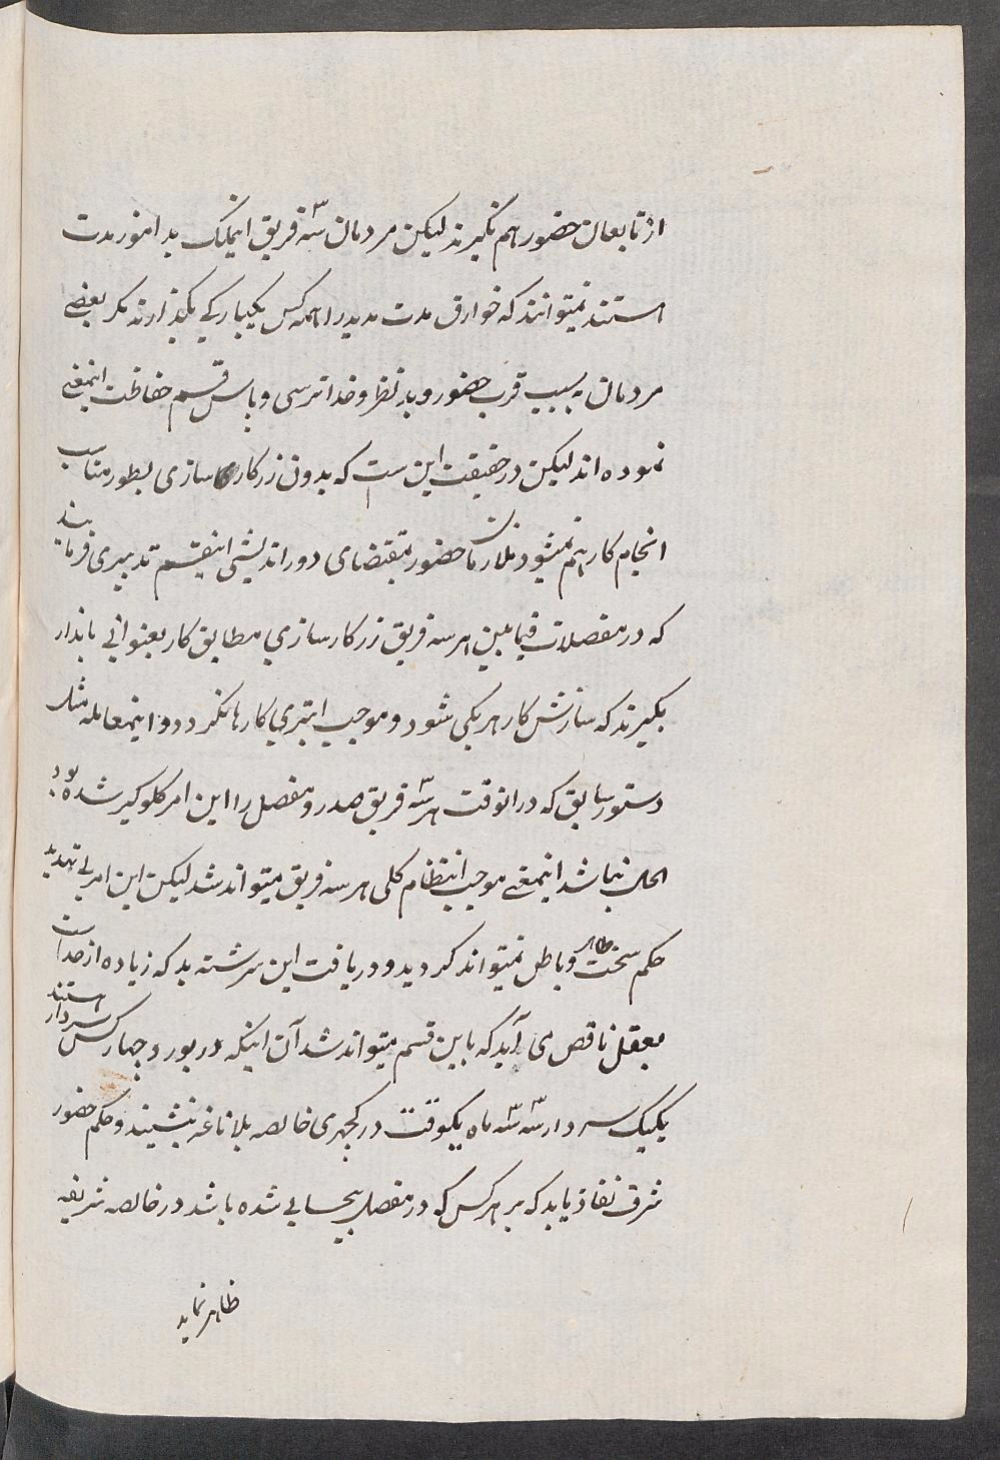 از تابعان حضور هم نگیرند لیکن مردمان سه فریق اینملک بد اموز مدت
استند نمیتوانند که خوارق مدت مدید را همه کس یکبارگی بگذارند مگر بعضے
مردمان به سبب قرب حضور و بد نظر و خدا ترسی و پاس قسم حفاظت اینمعنے
نموده اند لیکن در حقیقت این ست که بدون زر کار سازی بطور مناسب
انجام کار هم نمیشود ملازمان حضور بمقتضای دور اندیشی اینقسم تدبیری فرمایند
که در مفصلات فیمابین هر سه فریق زر کار سازی مطابق کار بعنوانی باندازه
بگیرند که سازش کار هریکی شود و موجب ابتری کارها نگردد و اینمعامله مثل
دستور سابق که درانوقت هر سه فریق صدر و مفصل را این امر گلوگیر شده بود
الحال نباشد اینمعنے موجب انتظام کلی هر سه فریق میتواند شد لیکن این امر بے تهدید
حکم سخت ظاهر و باطل نمیتواند گردید و دریافت این سررشته بد که زیاده از حد است
بعقل ناقص می آید که باین قسم میتواند شد آن اینکه در بورد چهار کس سردار هستند
یکیک سردار سه سه ماه یکوقت در کچهری خالصه بلا ناغه بنشیند و حکم حضور
شرف نفاذ یابد که بر هر کس که در مفصل بیحسابے شده باشد در خالصه شریفه
ظاهر نماید